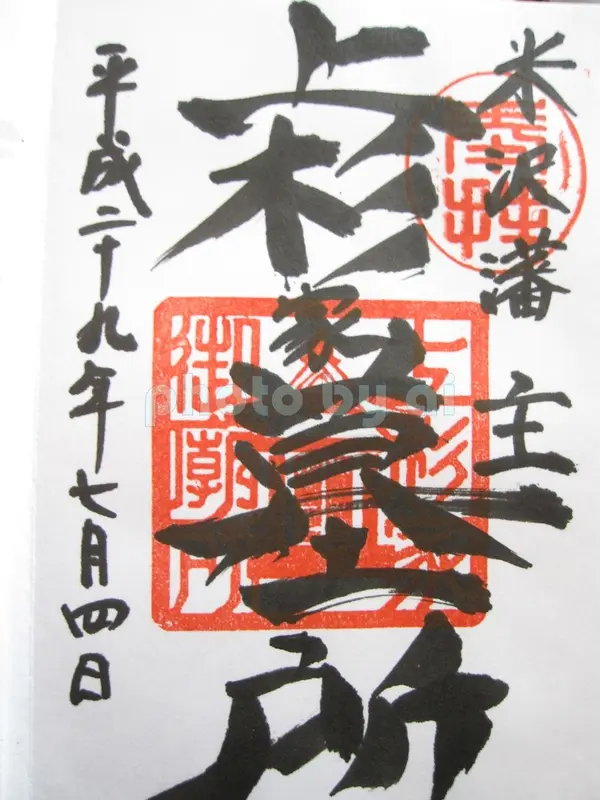 米沢藩主
上杉家墓所
平成二十九年七月四日
上杉家
御廟所
photo by ai